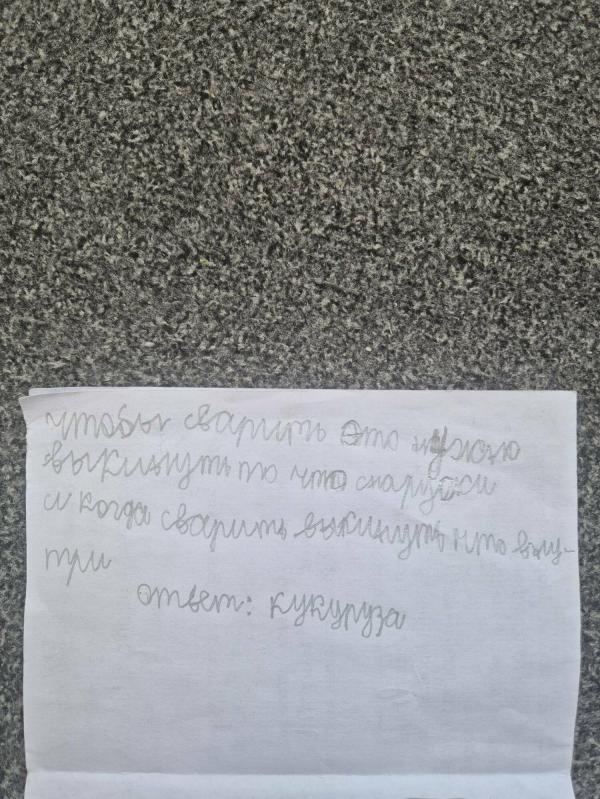 чтобы сварить это нужно
выкинуть то что снаружи
и когда сварить выкинуть что вну-
три
ответ: кукуруза